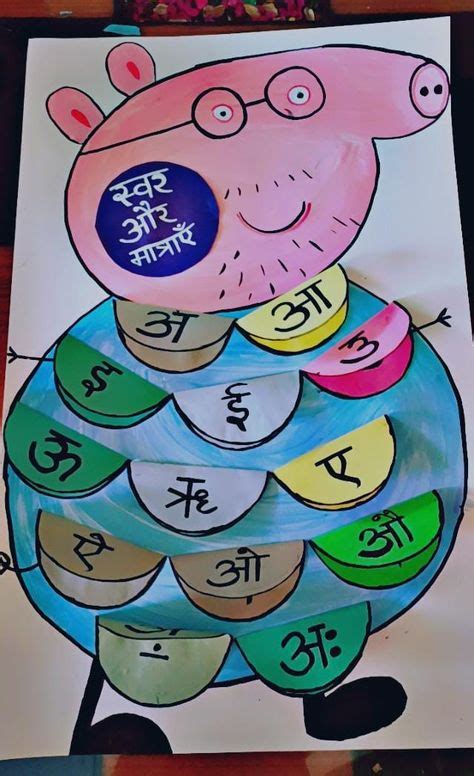 स्वर
और
मात्राएँ
अ
आ
इ
ई
उ
ऊ
ऋ
ए
ऐ
ओ
औ
अः